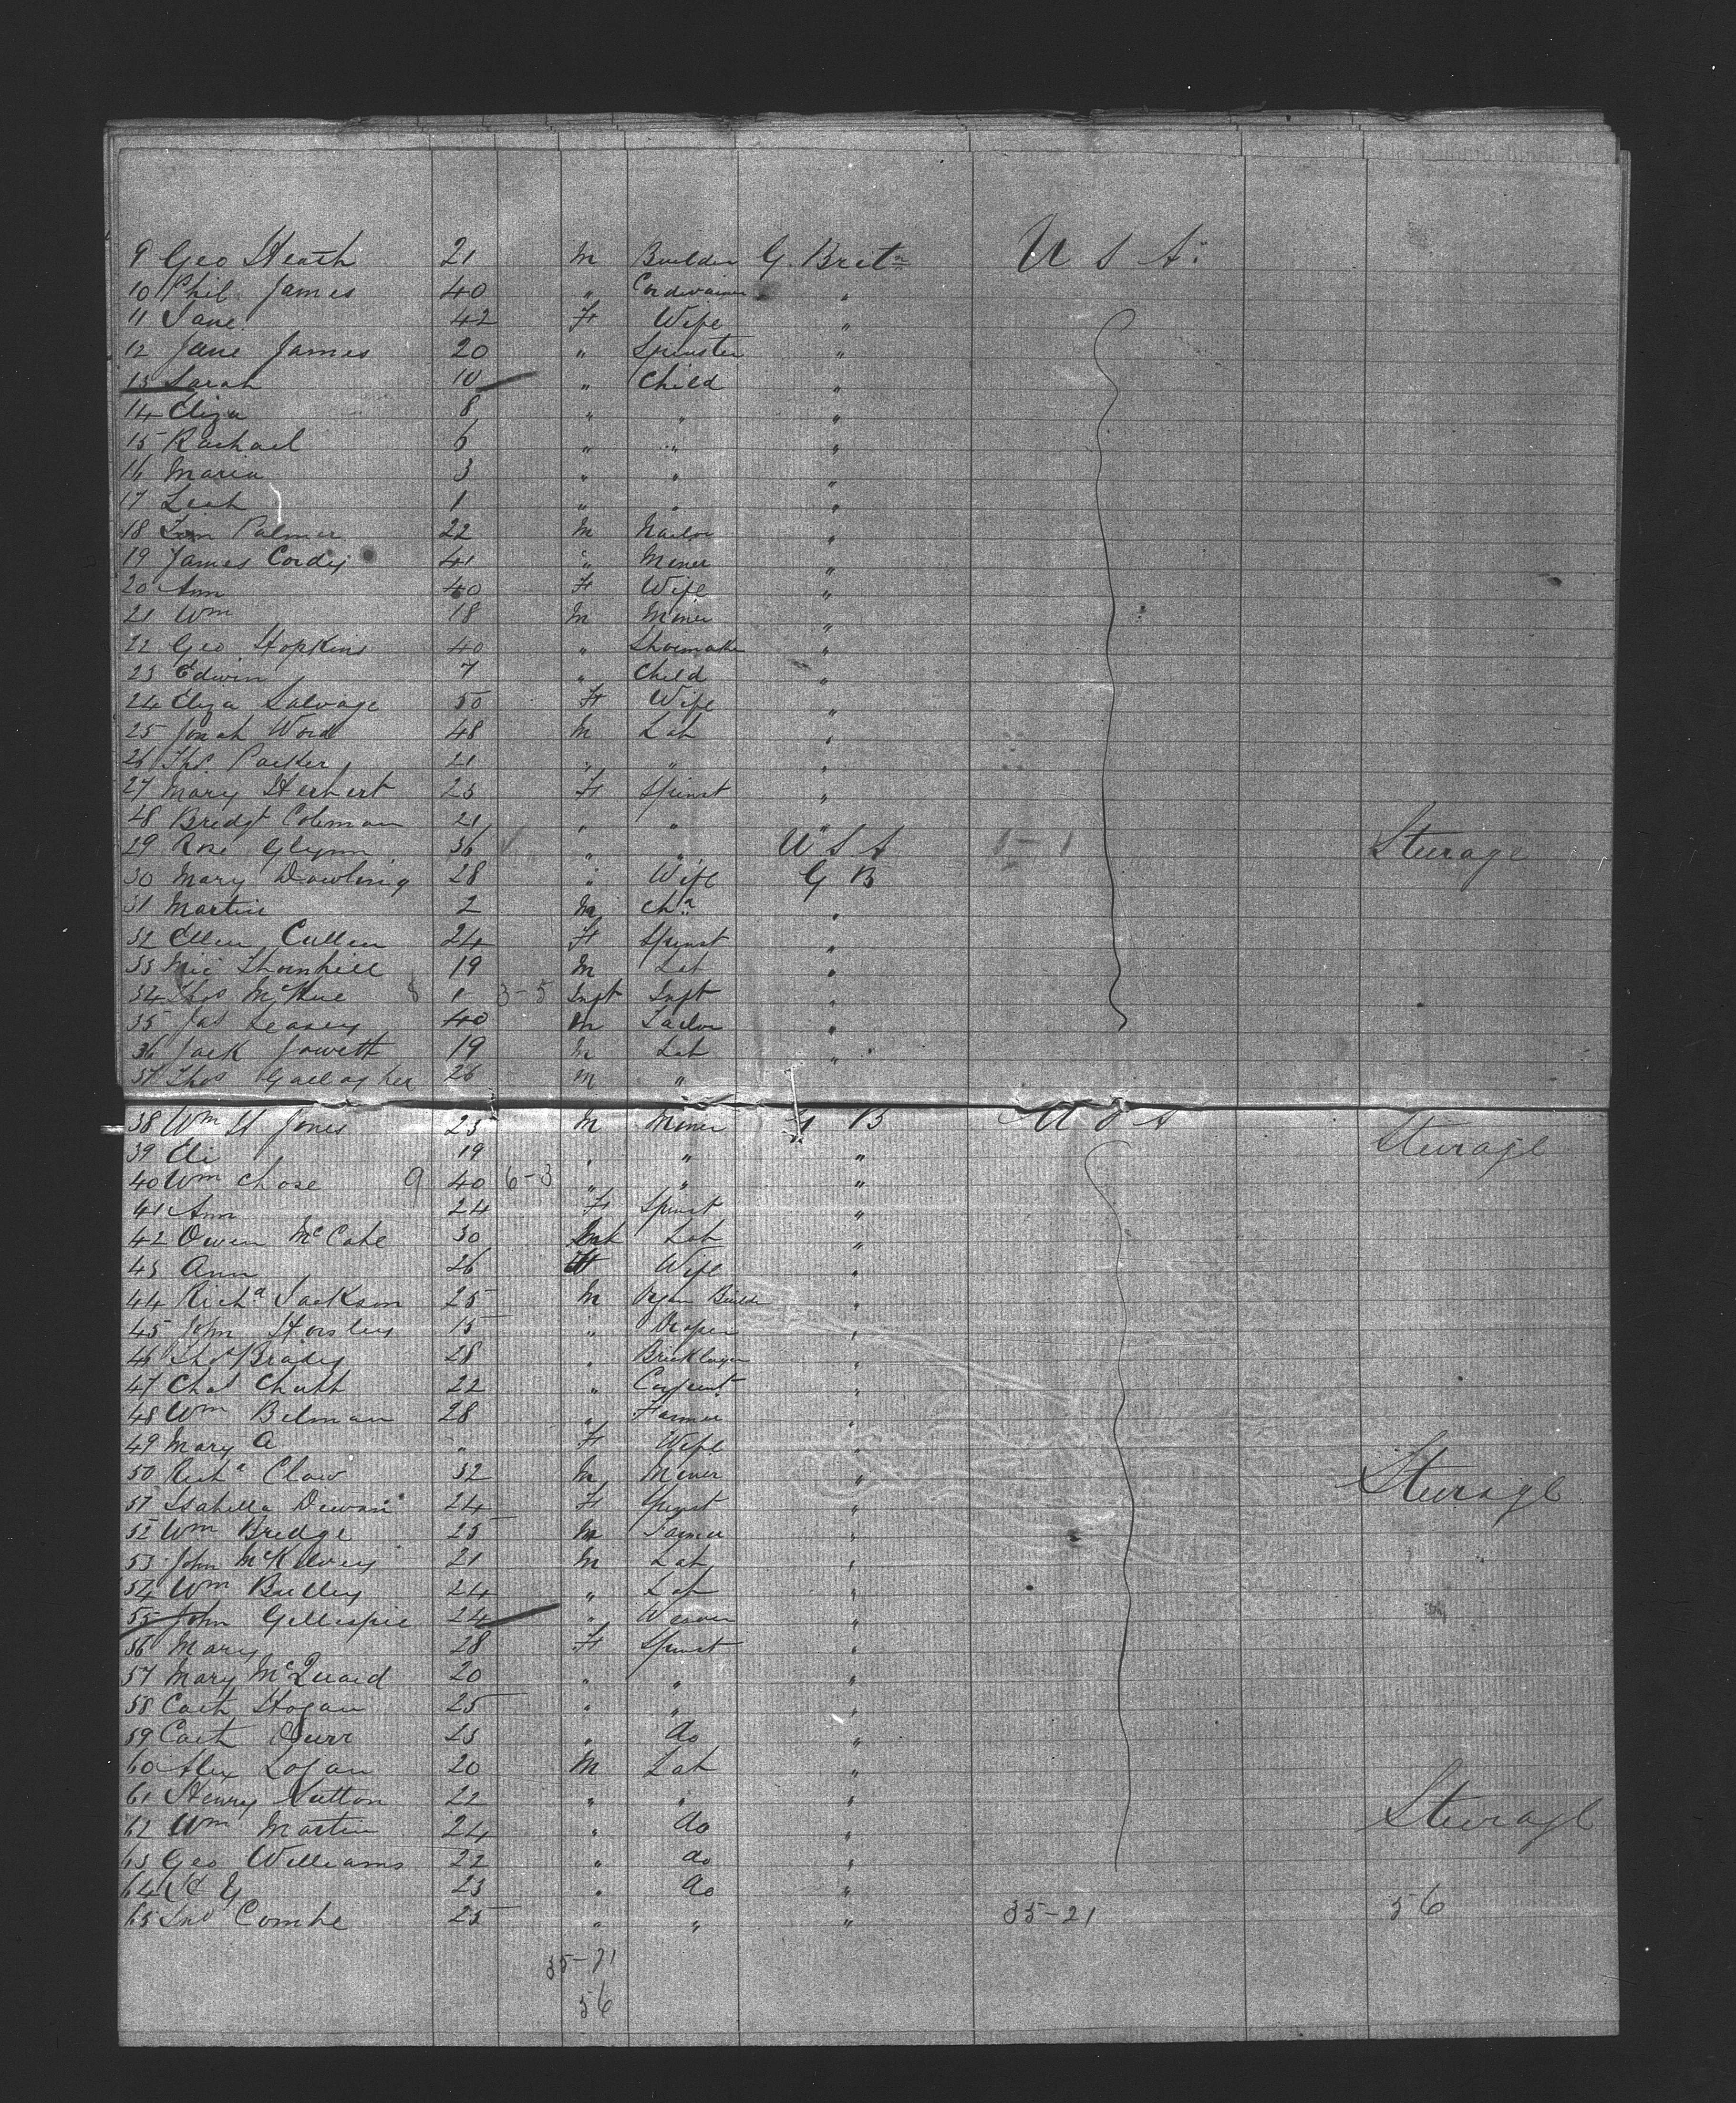 9 Geo Heath 21 M Builder G. Britn U S A:
10 Phil James 40 " Cordwainer "
11 Jane 42 F Wife "
12 Jane James 20 " Spinster "
13 Sarah 10 " Child "
14 Eliza 8 " " "
15 Rachael 6 " " "
16 Maria 3 " " "
17 Leah 1 " " "
18 Palmer 22 M "
19 James Cordy 41 " Miner "
20 Ann 40 F Wife "
21 Wm 18 M Miner "
22 Geo Hopkins 40 " Shoemaker "
23 Edwin 7 " Child "
24 Eliza Salvage 50 F Wife "
25 Jonah Word 48 M Lab "
26 Thos Parker 21 " " "
27 Mary Herbert 23 F Spinst "
28 Bridgt Coleman 21 " " "
29 Rose Glynn 36 " " U S A 1-1 Sturage
30 Mary Dowling 28 " Wife G B
31 Martin 2 M Chd "
32 Ellen Cullen 24 F Spinst "
33 Mic Thornhill 19 M Lab "
34 Thos McHue 8 1 3-5 Inft Inft "
35 Jas Leasey 40 M Tailor "
36 Jack Jowett 19 M Lab "
37 Thos Gallagher 26 M "
38 Wm H Jones 23 M Miner G B U S A Sturage
39 Eli 19 " " "
40 Wm Chose 9 40 6-3 " " "
41 Ann 24 F Spinst "
42 Owen McCabe 30 Lab "
43 Ann 26 F Wife "
44 Richd Jackson 25 M Organ Builder "
45 John Horsley 15 " Draper "
46 Thos Brady 28 " Bricklayer "
47 Chas Chubb 22 " Carpent "
48 Wm Belman 28 " Farmer "
49 Mary A " F Wife "
50 Richd Claw 32 M Miner " Sturage
51 Isabella Dewan 24 F Spinst "
52 Wm Bredge 25 M "
53 John McKilvey 21 M Lab "
54 Wm Bulley 24 " Lab "
55 John Gillespie 24 " Weaver "
56 Mary 28 F Spinst "
57 Mary McQuaid 20 " " "
58 Cath Hogan 25 " " "
59 Cath Durr 23 " do "
60 Alex Logan 20 M Lab "
61 Henry Sutton 22 " " "
62 Wm Martin 24 " do " Sturage
63 Geo Williams 22 " do "
64 23 " do "
65 Jno Combe 25 " " " 35-21 56
35-21
56